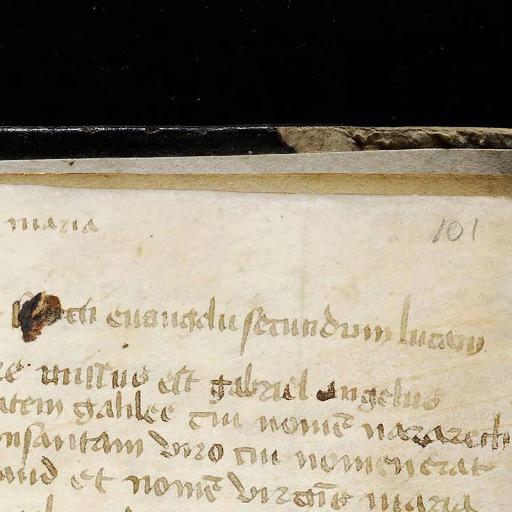 maria
101
sancti euangelii secundum lucam
missus est gabriel angelus
atem galilee cui nomē nazareth
onsantam viro cui nomen erat
auid et nomē virgīs maria